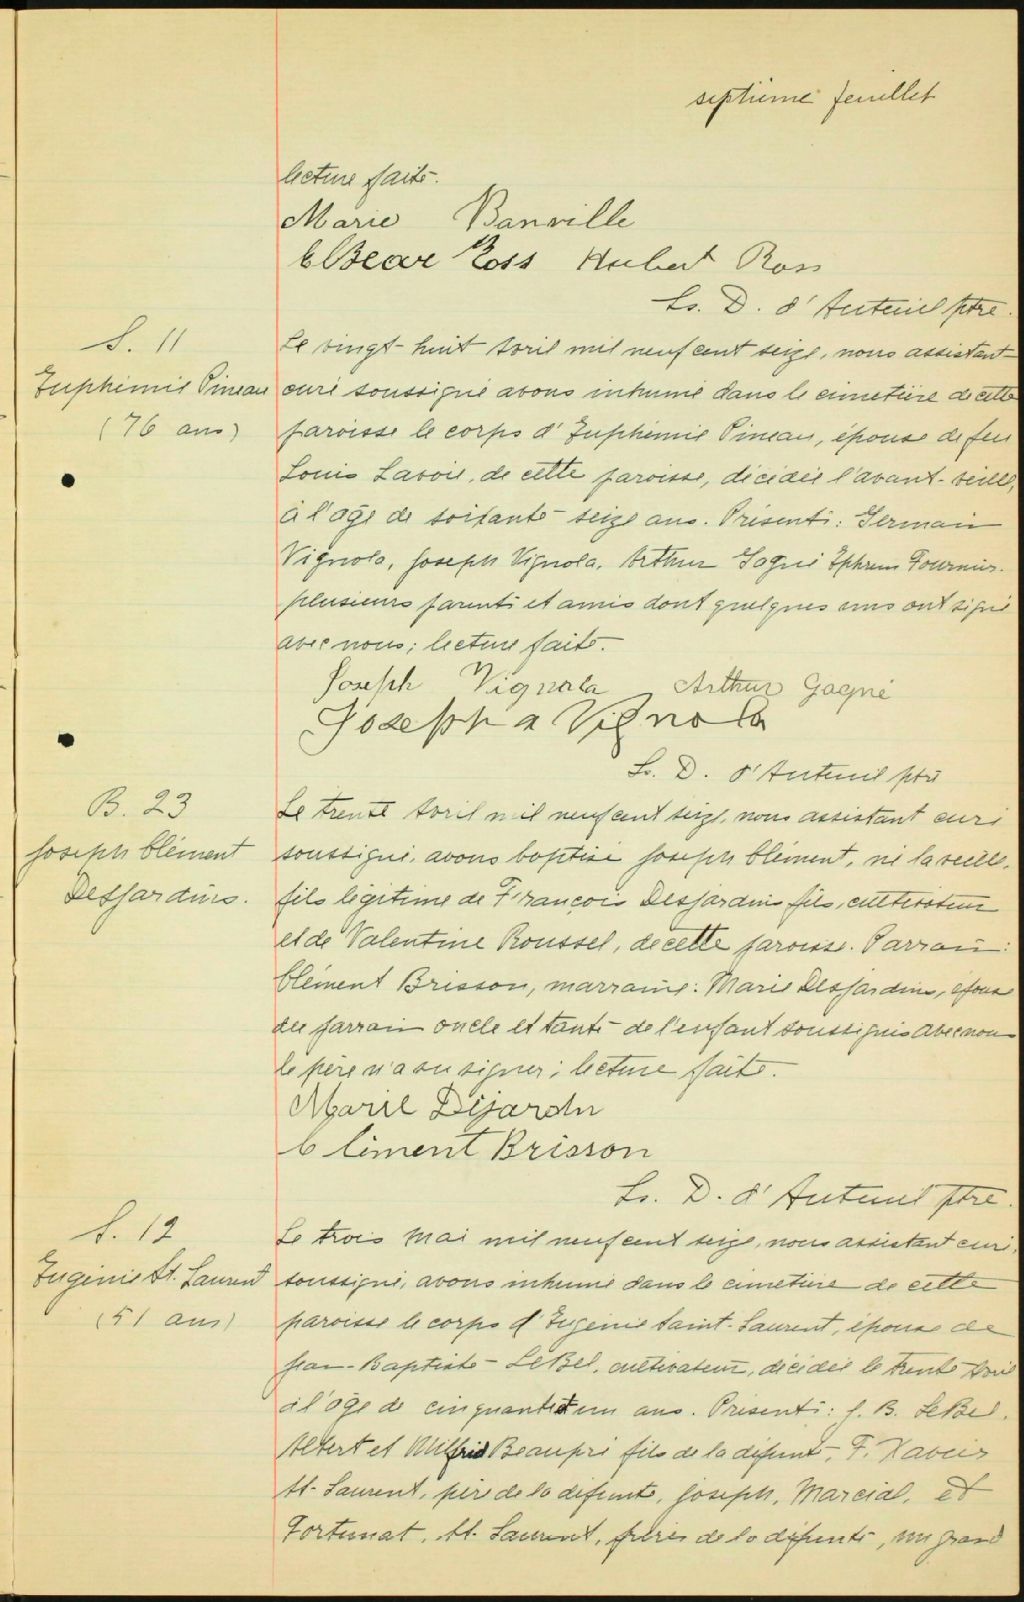 septième feuillet
lecture faite.
Marie Banville
Elzear Ross Hubert Ross
Ls. D. d'Auteuil ptre.
S. 11
Euphémie Pineau
(76 ans)
Le vingt-huit avril mil neuf cent seize, nous assistant-
curé soussigné avons inhumé dans le cimetière de cette
paroisse le corps d'Euphémie Pineau, épouse de feu
Louis Lavoie, de cette paroisse, décédée l'avant-veille,
à l'age de soixante-seize ans. Présents: Germain
Vignola, Joseph Vignola, Arthur Gagné Ephrem Fournier.
plusieurs parents et amis dont quelques uns ont signé
avec nous; lecture faite.
Joseph Vignola Arthur Gagné
Joseph a Vignola
Ls. D. d'Auteuil ptre
B. 23
Joseph Clément
Desjardins.
Le trente avril mil neuf cent seize, nous assistant curé
soussigné, avons baptisé Joseph Clément, né la veille,
fils légitime de François Desjardins fils, cultivateur
et de Valentine Roussel, de cette paroisse. Parrain:
Clément Brisson, marraine: Marie Desjardins, épouse
du parrain oncle et tante de l'enfant soussignés avec nous
le père n'a su signer; lecture faite.
Marie Déjardin
Clément Brisson
Ls. D. d'Auteuil ptre.
S. 12
Eugénie St. Laurent
(51 ans)
Le trois mai mil neuf cent seize, nous assistant curé,
soussigné, avons inhumé dans le cimetière de cette
paroisse le corps d'Eugénie Saint-Laurent, épouse de
Jean-Baptiste-LeBel, cultivateur, décédée le trente avril
à l'age de cinquante et un ans. Présents: J. B. LeBel,
Albert et Wilfrid Beaupré fils de la défunte, F. Xavier
St-Laurent, père de la défunte, Joseph, Marcial, et
Fortunat, St. Laurent, frères de la défunte, un grand